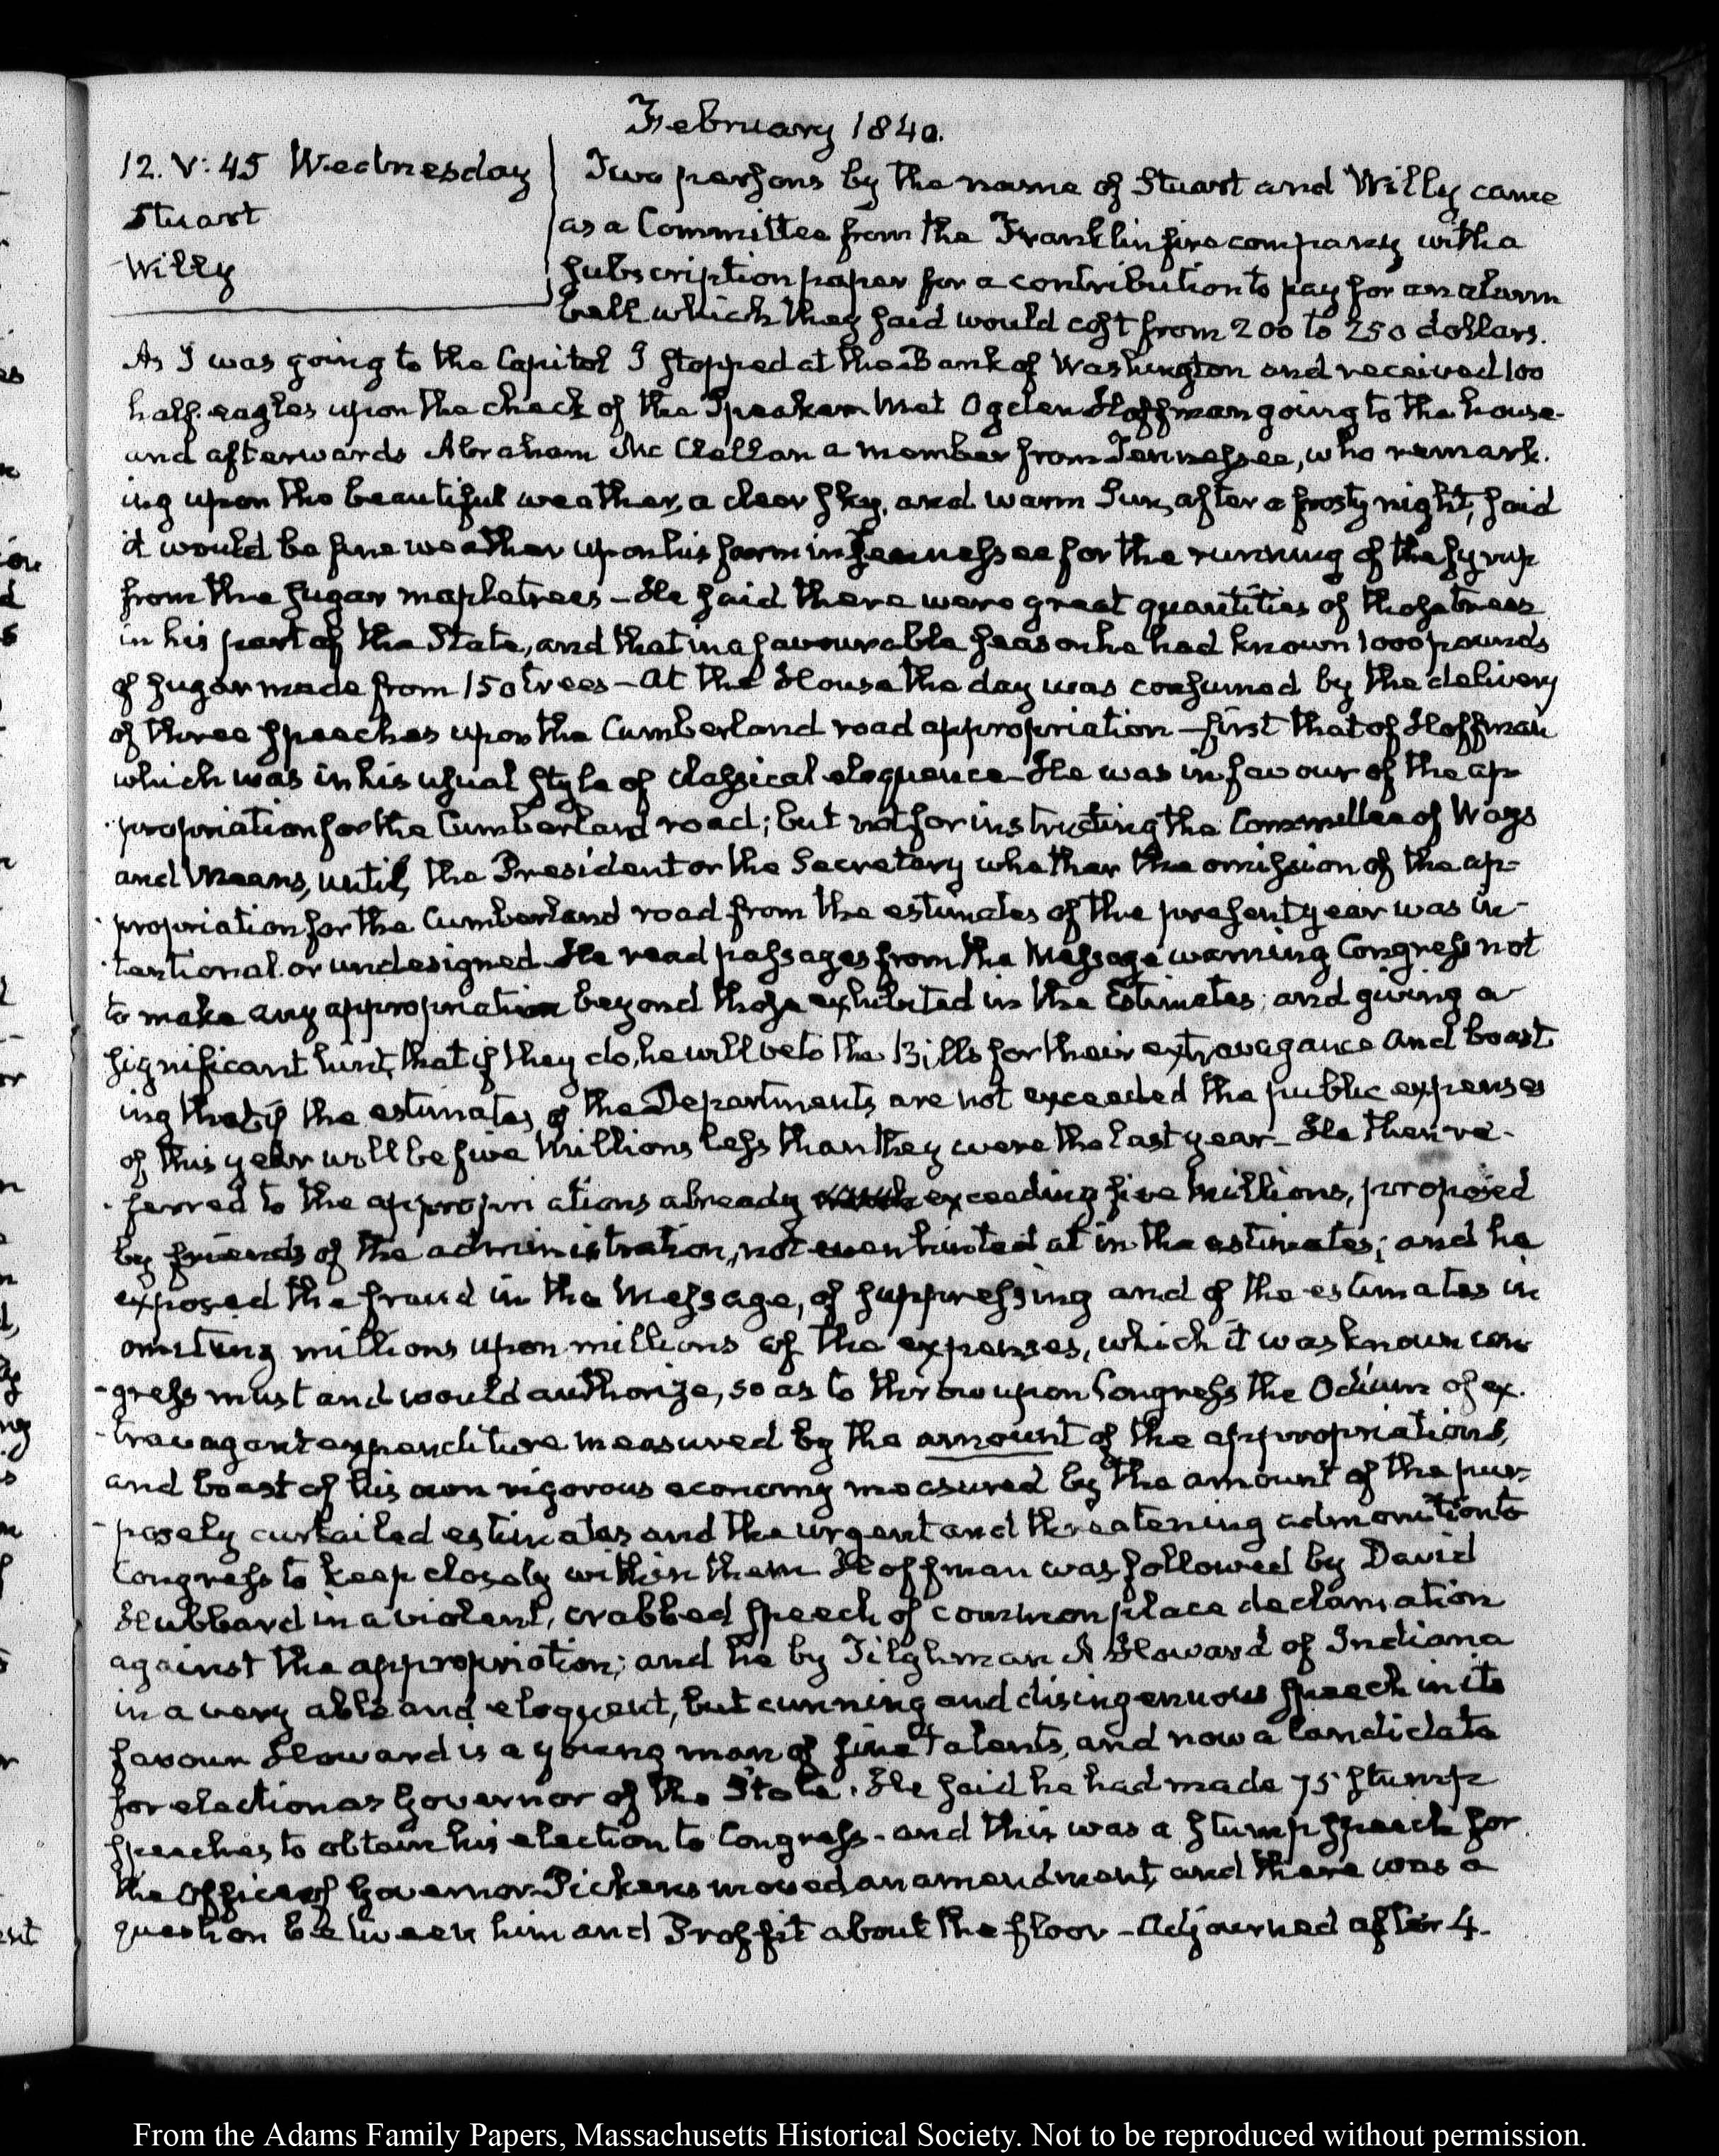 February 1840.
12. V: 45 Wednesday
Stuart
Willy
Two persons by the name of Stuart and Willy came
as a Committee from the Franklin fire company with a
subscription paper for a contribution to pay for an alarm
bell which they said would cost from 200 to 250 dollars.
As I was going to the Capitol I stopped at the Bank of Washington and received 100
half-eagles upon the check of the Speaker. Met Ogden Hoffman going to the house
and afterwards Abraham McClellan a member from Tennessee, who remark-
ing upon the beautiful weather, a clear sky, and warm Sun, after a frosty night, said
it would be fine weather upon his farm in Tennessee for the running of the syrup
from the sugar maple trees – He said there were great quantities of those trees
in his part of the State, and that in a favourable season he had known 1000 pounds
of sugar made from 150 trees – At the House the day was consumed by the delivery
of three speeches upon the Cumberland road appropriation – first that of Hoffman
which was in his usual style of classical eloquence – He was in favour of the ap-
-propriation for the Cumberland road; but not for instructing the Committee of Ways
and Means, until, the President or the Secretary whether the omission of the ap-
-propriation for the Cumberland road from the estimates of the present year was in-
-tentional or undesigned. He read passages from the Message warning Congress not
to make any appropriation beyond those exhibited in the Estimates; and giving a
significant hint, that if they do, he will veto the Bills for their extravagance and boast-
ing that if the estimates of the Departments are not exceeded the public expenses
of this year will be five Millions less than they were the last year – He then re-
-ferred to the appropriations already exceeding five Millions, proposed
by friends of the administration, not even hinted at in the estimates; and he
exposed the fraud in the Message, of suppressing and of the estimates in
omitting millions upon millions of the expenses, which it was known con
-gress must and would authorize, so as to throw upon Congress the Odium of ex-
-travagant expenditure measured by the amount of the appropriations,
and boast of his own rigorous economy measured by the amount of the pur-
-posely curtailed estimates and the urgent and threatening admonition to
Congress to keep closely within them. Hoffman was followed by David
Hubbard in a violent, crabbed speech of common place declamation
against the appropriation; and he by Tilghman A Howard of Indiana
in a very able and eloquent, but cunning and disingenuous speech in its
favour. Howard is a young man of fine talents, and now a Candidate
for election as Governor of the State. He said he had made 75 stump
speeches to obtain his election to Congress – and this was a stump speech for
the Office of Governor. Pickens moved an amendment, and there was a
question between him and Proffit about the floor – Adjourned after 4.
From the Adams Family Papers, Massachusetts Historical Society. Not to be reproduced without permission.